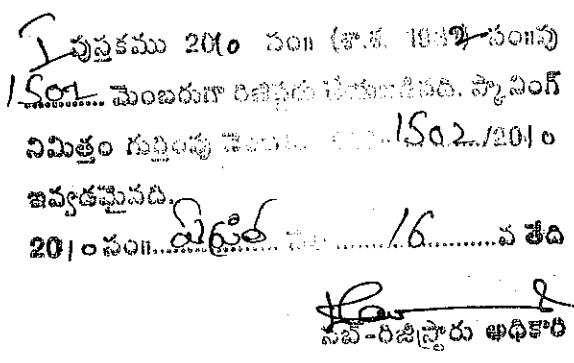 I పుస్తకము 2010 సం॥ (శా.శ. 1932) సం॥పు
1502 నెంబరుగా రిజిష్టరు చేయబడినది. స్కానింగ్
నిమిత్తం గుర్తింపు నెంబరు 1502/2010
ఇవ్వడమైనది.
2010 సం॥ ఏప్రిల్ నెల 16 వ తేది
సబ్-రిజిస్ట్రారు అధికారి